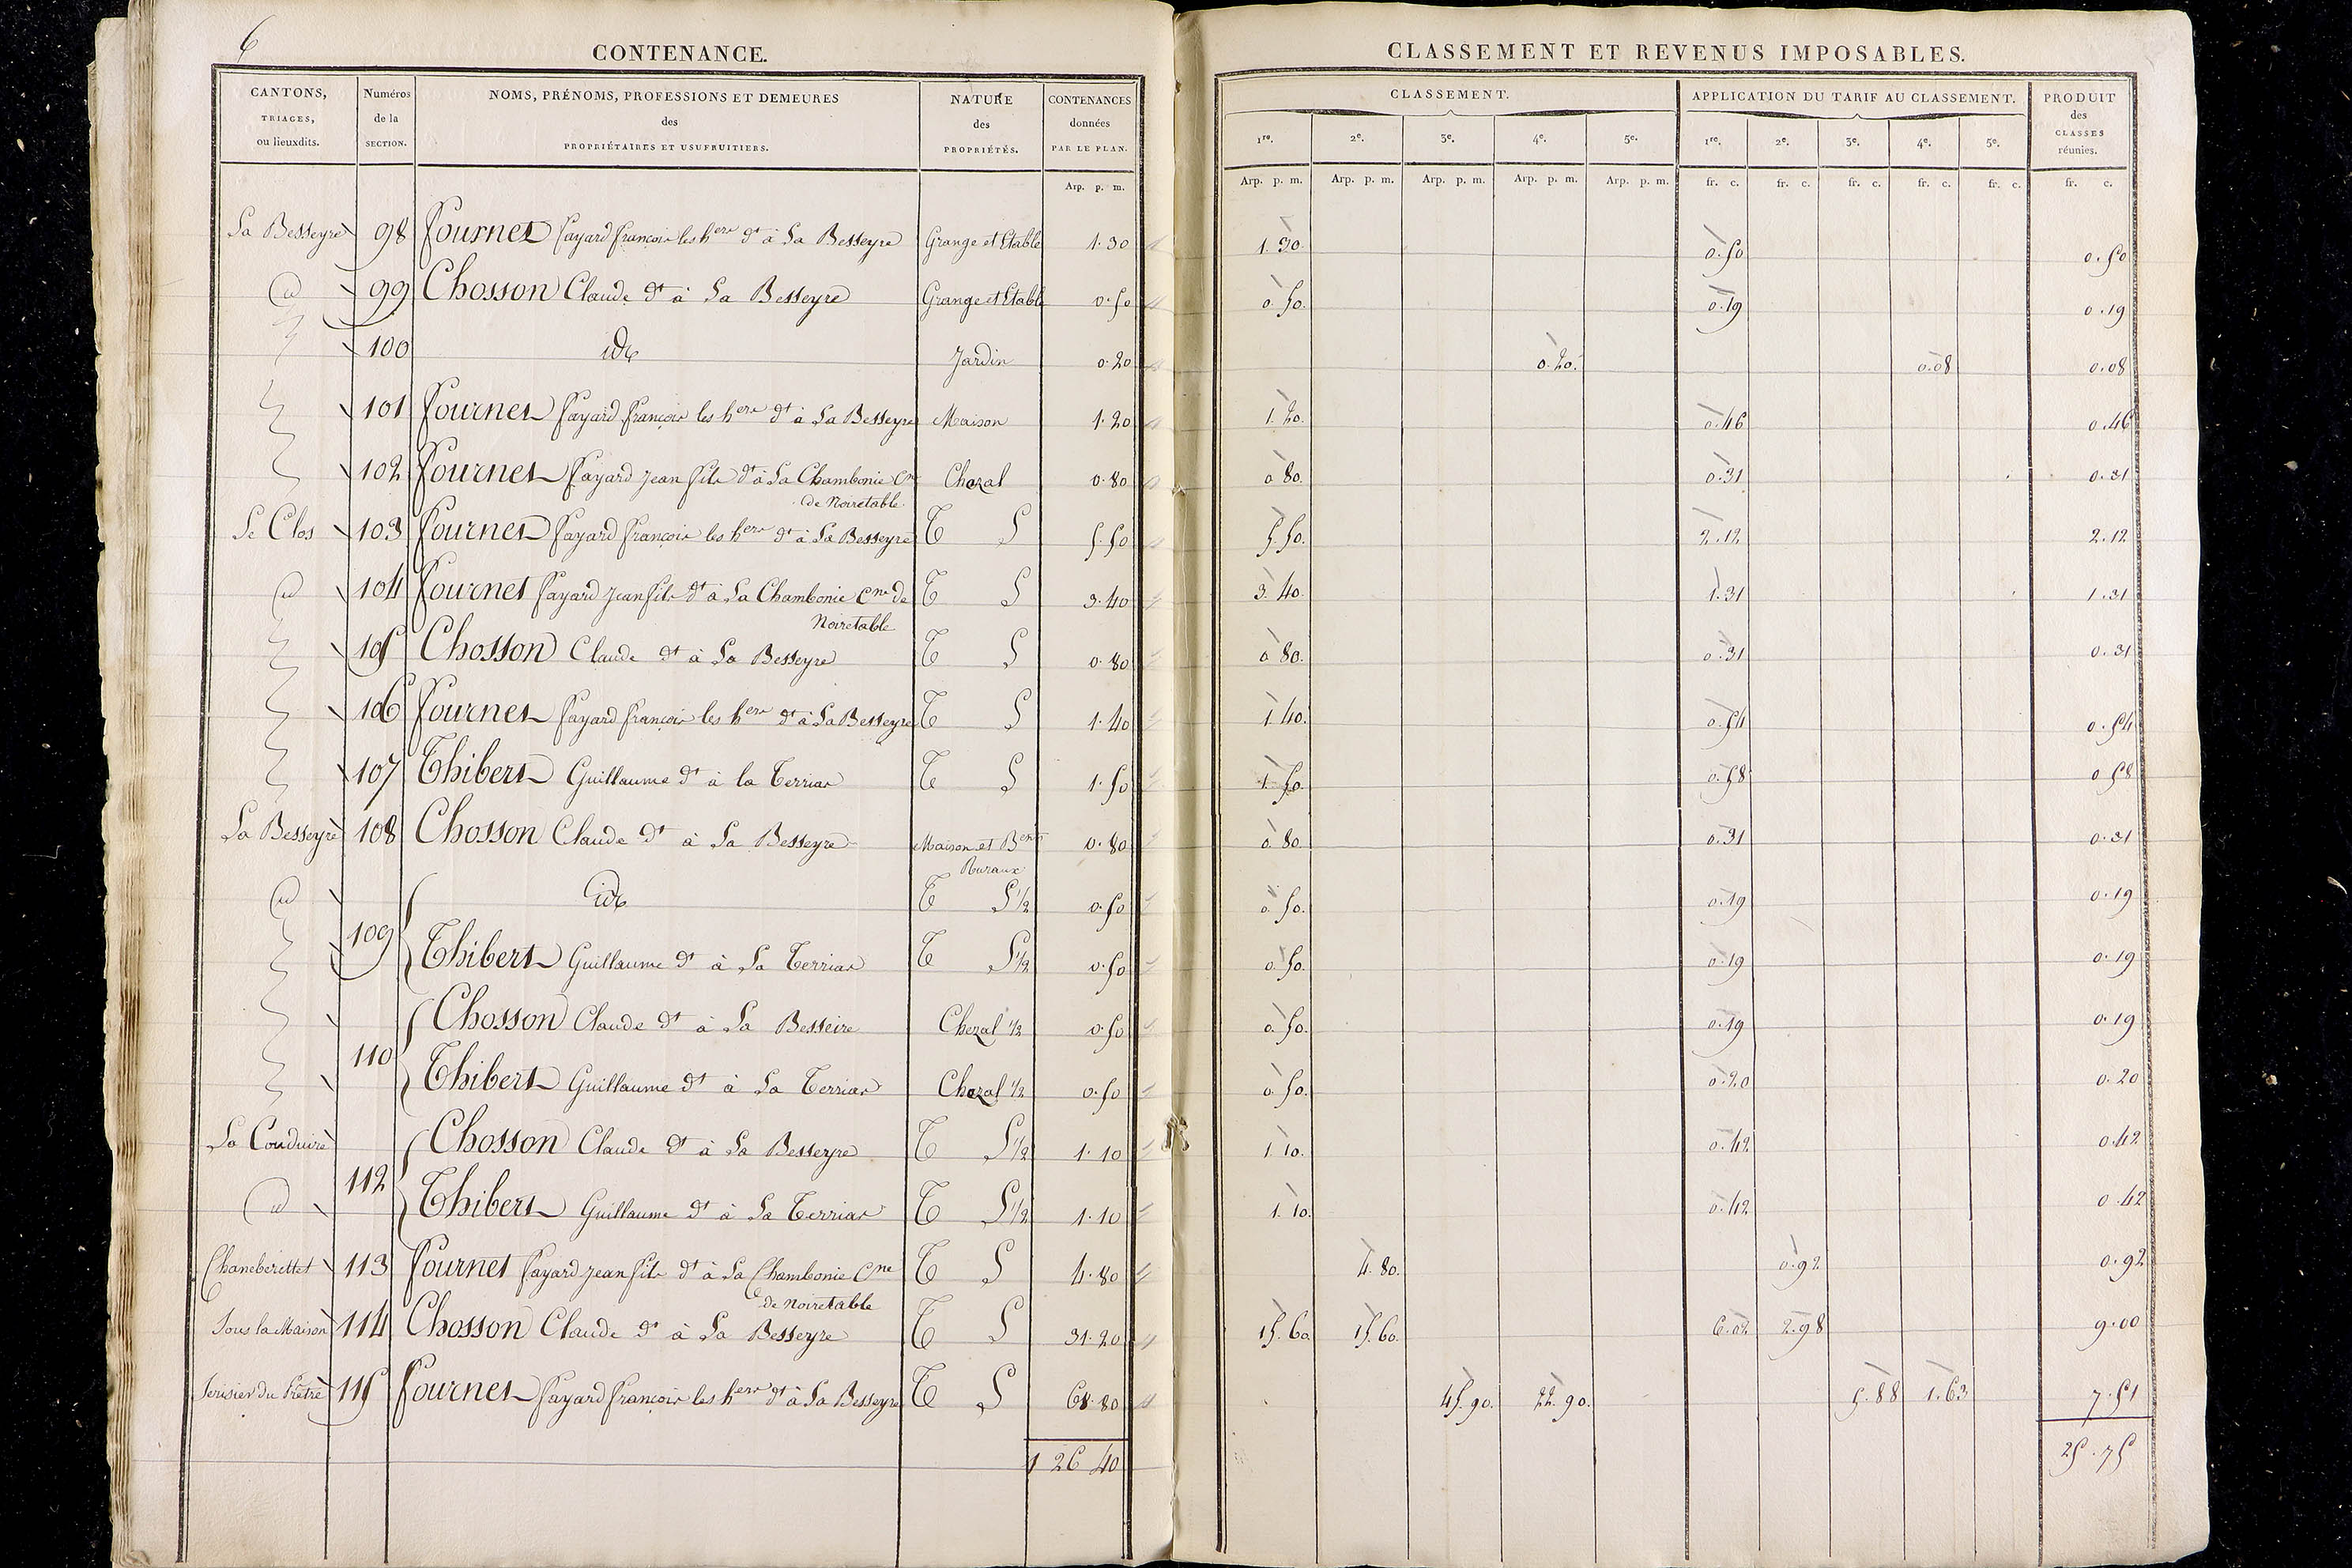 6
CONTENANCE.
CANTONS, TRIAGES, ou lieuxdits.
Numéros de la SECTION.
NOMS, PRÉNOMS, PROFESSIONS ET DEMEURES des PROPRIÉTAIRES ET USUFRUITIERS.
NATURE des PROPRIÉTÉS.
CONTENANCES données PAR LE PLAN.
Arp. p. m.
CLASSEMENT ET REVENUS IMPOSABLES.
CLASSEMENT.
APPLICATION DU TARIF AU CLASSEMENT.
PRODUIT des CLASSES réunies.
1re. 2e. 3e. 4e. 5e. 1re. 2e. 3e. 4e. 5e.
Arp. p. m. Arp. p. m. Arp. p. m. Arp. p. m. Arp. p. m. fr. c. fr. c. fr. c. fr. c. fr. c. fr. c.
La Besseyre 98 Fournet fayard françois les hers dt à La Besseyre Grange et Etable 1.30 1.30 0.50 0.50
id 99 Chosson Claude dt à La Besseyre Grange et Etable 0.50 0.50 0.19 0.19
100 ide Jardin 0.20 0.20 0.08 0.08
101 Fournet fayard françois les hers dt à La Besseyre Maison 1.20 1.20 0.46 0.46
102 Fournet fayard jean fils dt à La Chambonie Cne Chazal 0.80 0.80 0.31 0.31
de Noiretable
Le Clos 103 Fournet fayard françois les hers dt à La Besseyre T L 5.50 5.50 2.12 2.12
id 104 Fournet fayard jean fils dt à La Chambonie Cne de T L 3.40 3.40 1.31 1.31
Noiretable
105 Chosson Claude dt à La Besseyre T L 0.80 0.80 0.31 0.31
106 Fournet fayard françois les hers dt à La Besseyre T L 1.40 1.40 0.54 0.54
107 Thibert Guillaume dt à la Terrias T L 1.50 1.50 0.58 0.58
La Besseyre 108 Chosson Claude dt à La Besseyre Maison et Bents 0.80 0.80 0.31 0.31
Ruraux
id ide T L 1/2 0.50 0.50 0.19 0.19
109
Thibert Guillaume dt à La Terrias T L 1/2 0.50 0.50 0.19 0.19
Chosson Claude dt à La Besseire Chezal 1/2 0.50 0.50 0.19 0.19
110
Thibert Guillaume dt à La Terrias Chazal 1/2 0.50 0.50 0.20 0.20
La Couduire Chosson Claude dt à La Besseyre T L 1/2 1.10 1.10 0.42 0.42
112
id Thibert Guillaume dt à La Terrias T L 1/2 1.10 1.10 0.42 0.42
Chaneberettet 113 Fournet fayard jean fils dt à La Chambonie Cne T L 4.80 4.80 0.92 0.92
de Noiretable
Sous la Maison 114 Chosson Claude dt à La Besseyre T L 31.20 15.60 15.60 6.02 2.98 9.00
Serisier du Prêtre 115 Fournet fayard françois les hers dt à La Besseyre T L 68.80 45.90 22.90 5.88 1.63 7.51
126 40 25.75